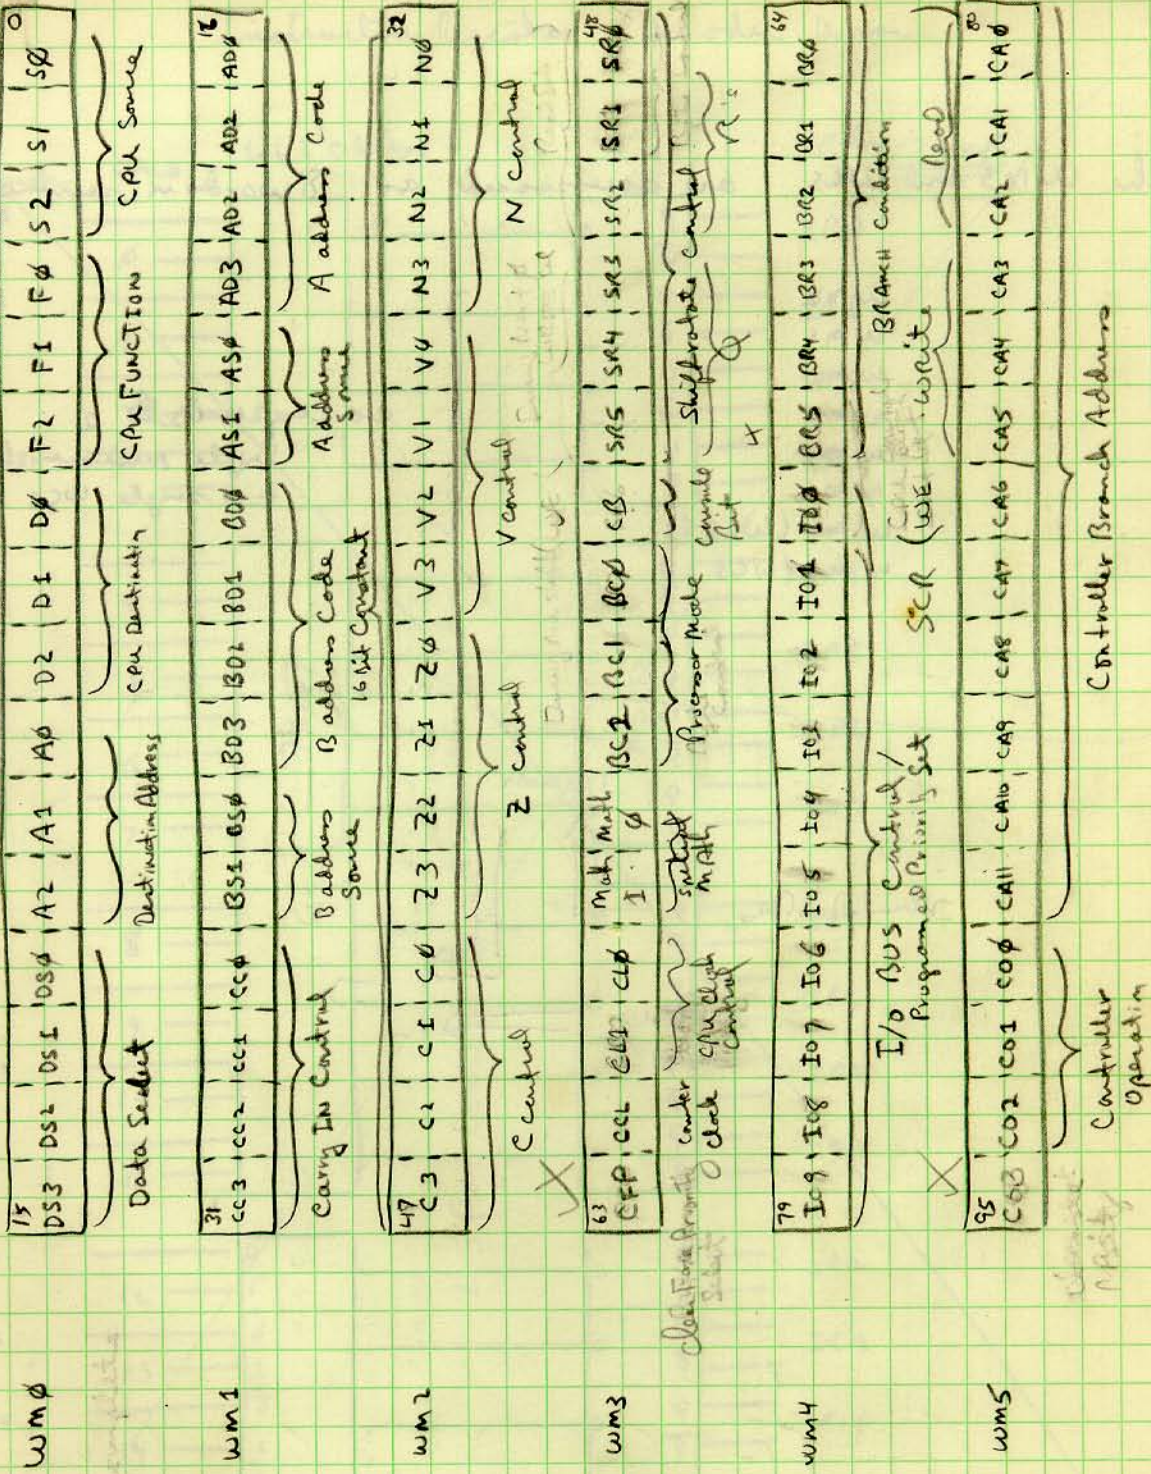 WMØ
15 0
DS3 DS2 DS1 DSØ A2 A1 AØ D2 D1 DØ F2 F1 FØ S2 S1 SØ
Data Select Destination Address CPU Destination CPU FUNCTION CPU Source
WM1
31 16
CC3 CC2 CC1 CCØ BS1 BSØ BD3 BD2 BD1 BDØ AS1 ASØ AD3 AD2 AD2 ADØ
Carry IN Control B address Source B address Code A address Source A address Code
16 bit Constant
WM2
47 32
C3 C2 C1 CØ Z3 Z2 Z1 ZØ V3 V2 V1 VØ N3 N2 N1 NØ
C control Z control V control N Control
X
WM3
63 48
CFP CCL CL1 CLØ Math 1 Math Ø BC2 BC1 BCØ CB SR5 SR4 SR3 SR2 SR1 SRØ
Counter Clock CPU Clock Control Math Processor Mode Console Bit Shift/rotate Control
Q R's
4
WM4
79 64
IO9 IO8 IO7 IO6 IO5 IO4 IO3 IO2 IO1 IOØ BR5 BR4 BR3 BR2 BR1 BRØ
I/O BUS Control / BRANCH Condition
Programed Priority Set
SCR (WE write Read
X
WM5
95 80
CO3 CO2 CO1 COØ CA11 CA10 CA9 CA8 CA7 CA6 CA5 CA4 CA3 CA2 CA1 CAØ
Controller Operation Controller Branch Address